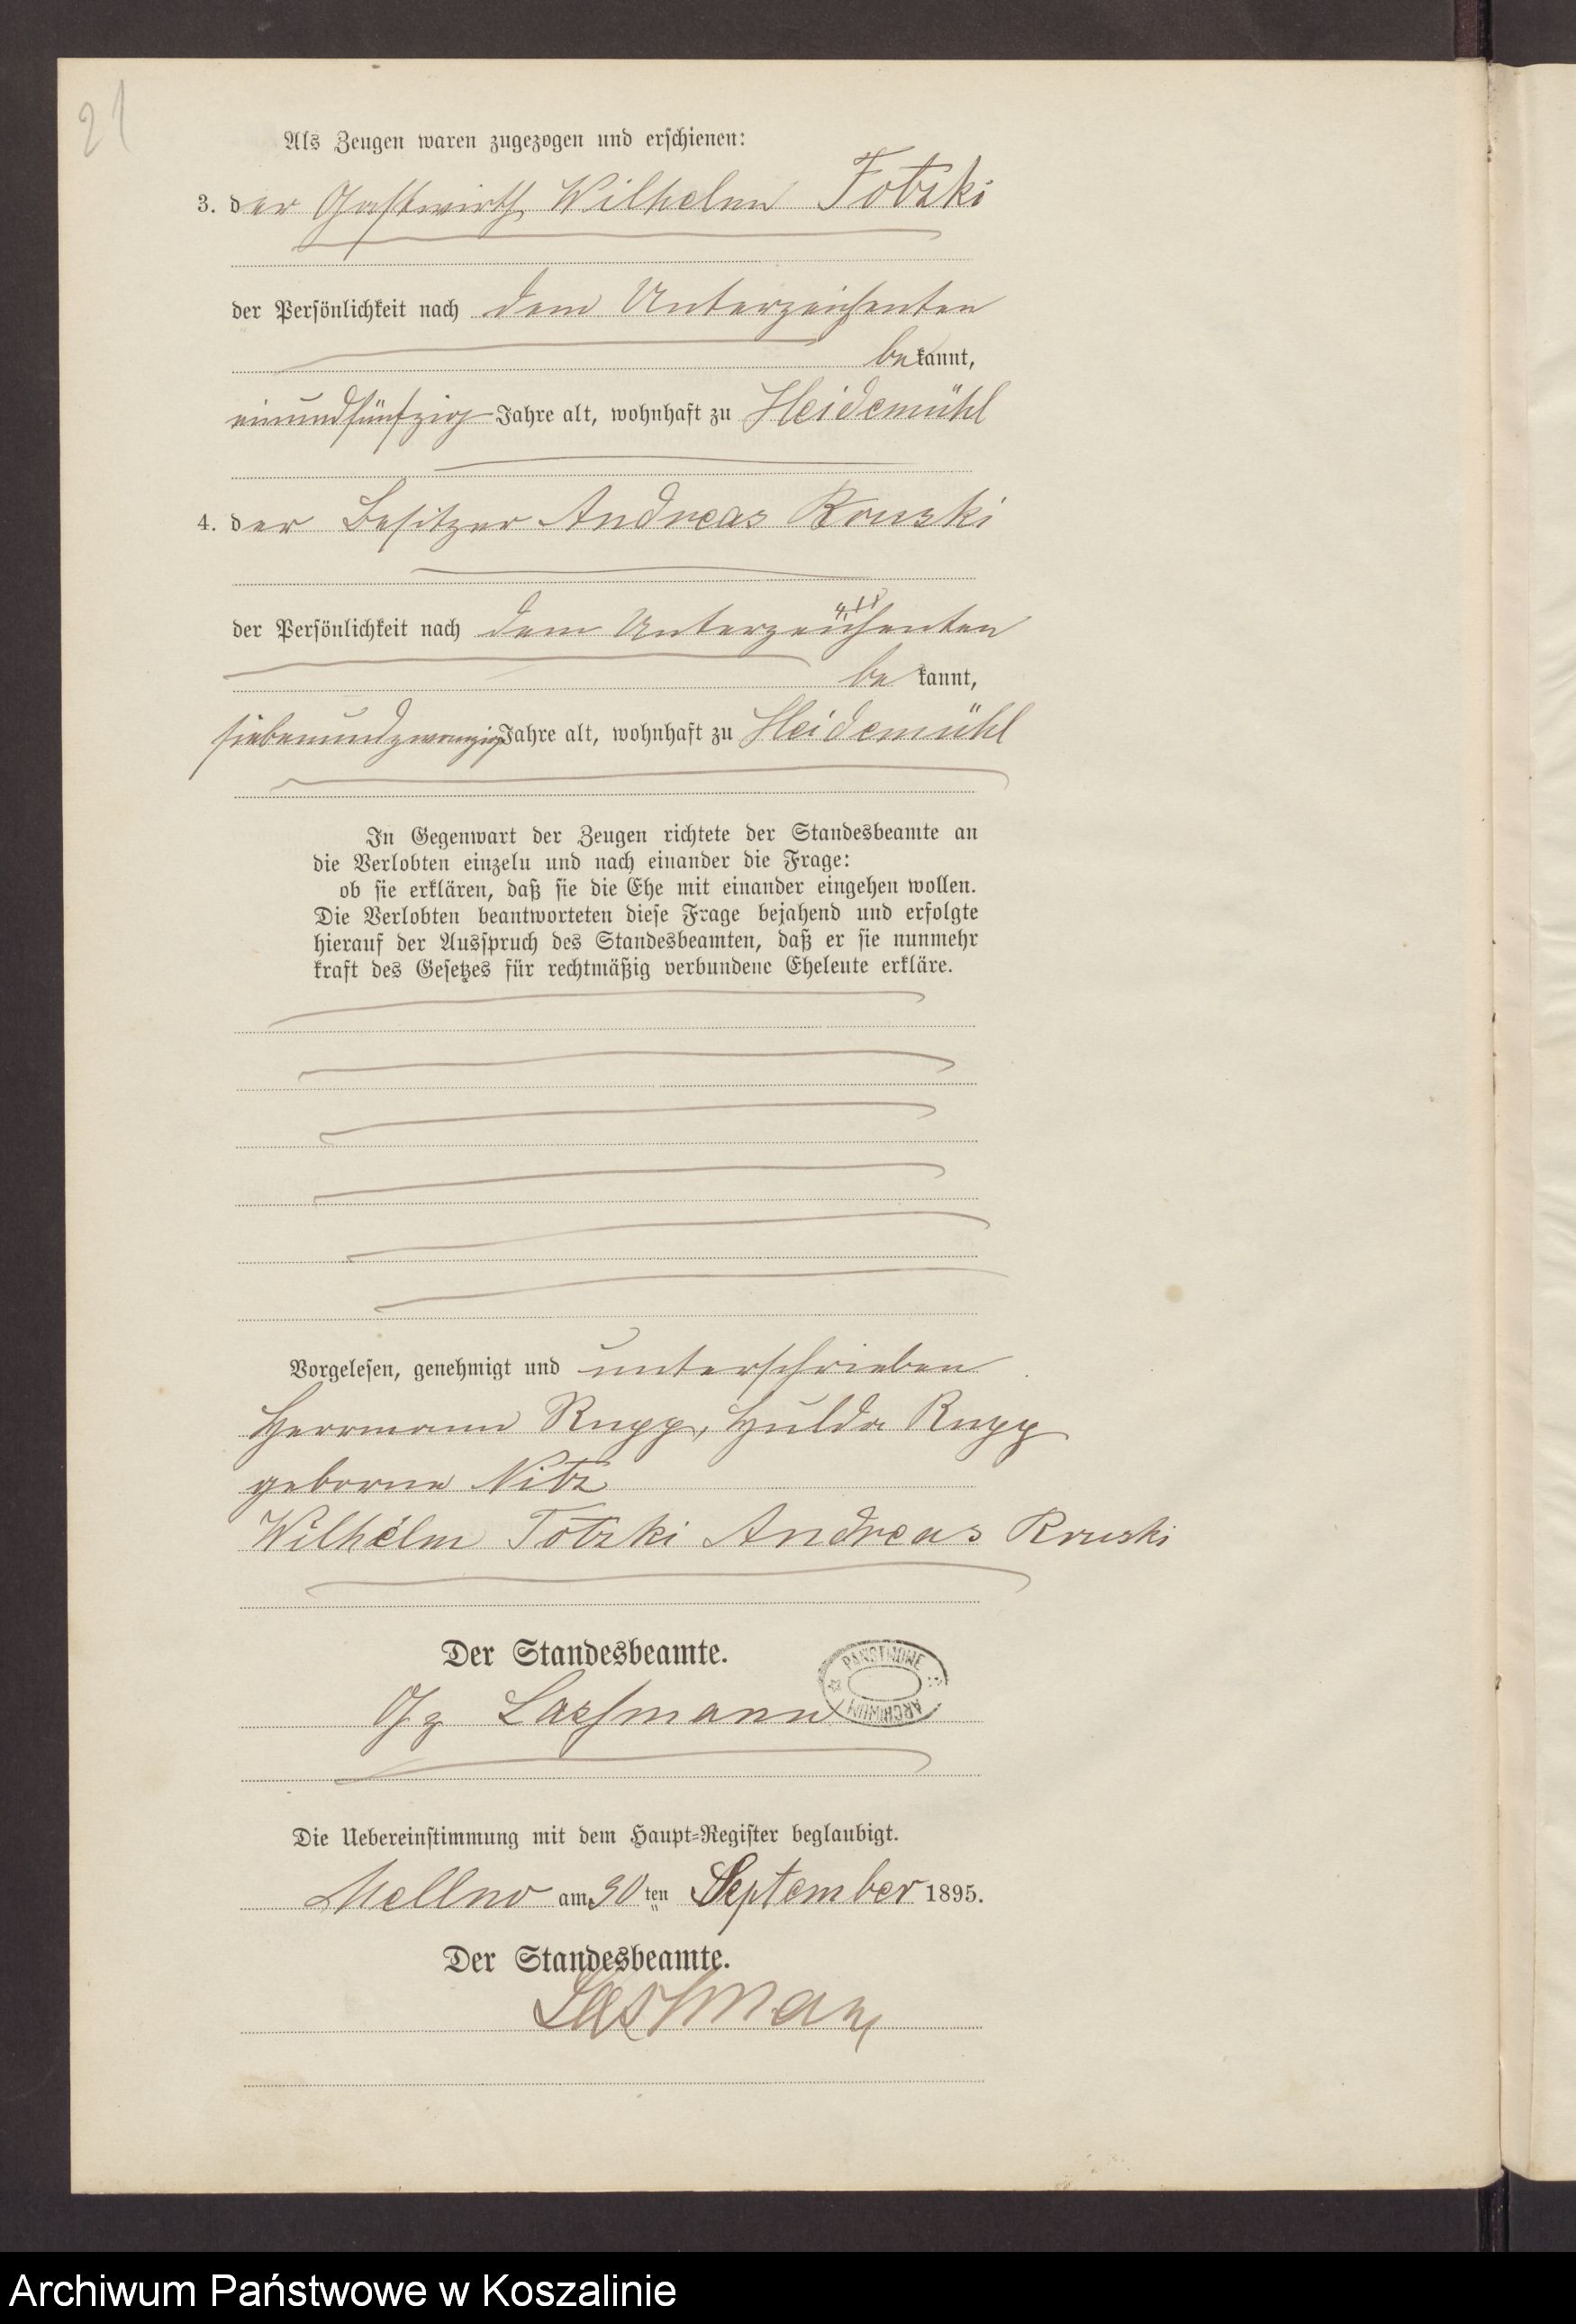 21
Als Zeugen waren zugezogen und erschienen:
3. der Gastwirth Wilhelm Totzki
der Persönlichkeit nach dem Unterzeichenten
bekannt,
einundfünfzig Jahre alt, wohnhaft zu Heidemühl
4. der Besitzer Andreas
der Persönlichkeit nach dem Unterzeichenten
bekannt,
siebenundzwanzig Jahre alt, wohnhaft zu Heidemühl
In Gegenwart der Zeugen richtete der Standesbeamte an
die Verlobten einzeln und nach einander die Frage:
ob sie erklären, daß sie die Ehe mit einander eingehen wollen.
Die Verlobten beantworteten diese Frage bejahend und erfolgte
hierauf der Ausspruch des Standesbeamten, daß er sie nunmehr
kraft des Gesetzes für rechtmäßig verbundene Eheleute erkläre.
Vorgelesen, genehmigt und unterschrieben
Herrmann Rupp, Hulda Rupp
geborne Nitz
Wilhelm Totzki Andreas
Der Standesbeamte.
PAŃSTWOWE
ARCHIWUM
Gz Lassmann
Die Uebereinstimmung mit dem Haupt-Register beglaubigt.
Mellno am 30ten September 1895.
Der Standesbeamte.
Lassmann
Archiwum Państwowe w Koszalinie